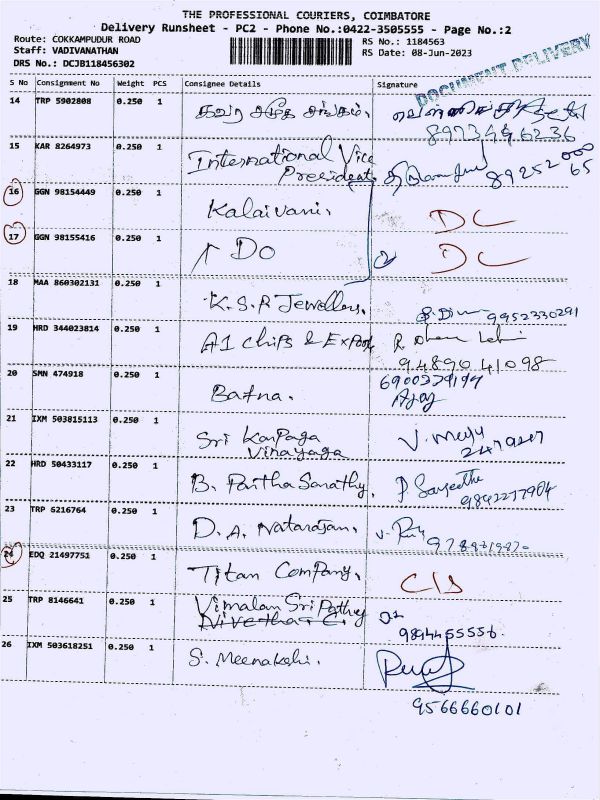 THE PROFESSIONAL COURIERS, COIMBATORE
Delivery Runsheet - PC2 - Phone No.:0422-3505555 - Page No.:2
Route: COKKAMPUDUR ROAD
RS No.: 1184563
Staff: VADIVANATHAN
RS Date: 08-Jun-2023
DRS No.: DCJB118456302
DOCUMENT DELIVERY
S No Consignment No Weight PCS Consignee Details Signature
14 TRP 5902808 0.250 1
8973446236
15 KAR 8264973 0.250 1 International Vice
President. 89252 000
65
16 GGN 98154449 0.250 1 Kalaivani. DC
17 GGN 98155416 0.250 1 Do DC
18 MAA 860302131 0.250 1 K.S.R Jewellers. 9952330291
19 HRD 344023814 0.250 1 A1 chips & Export R.
94890 41098
20 SMN 474918 0.250 1 Batna. Ajay
21 IXM 503815113 0.250 1 Sri Karpaga
Vinayaga
22 HRD 50433117 0.250 1 B. Partha Sarathy. P. Sangeetha
9842277904
23 TRP 6216764 0.250 1 D.A. Natarajan.
24 EDQ 21497751 0.250 1 Titan Company. C/S
25 TRP 8146641 0.250 1 Vimalan Sri Pathy
Nivetha C.
9894455556.
26 IXM 503618251 0.250 1 S. Meenakshi.
9566660101